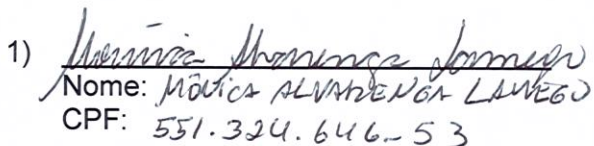 1) Mônica Alvarenga Lamego
Nome: MÔNICA ALVARENGA LAMEGO
CPF: 551.324.646-53